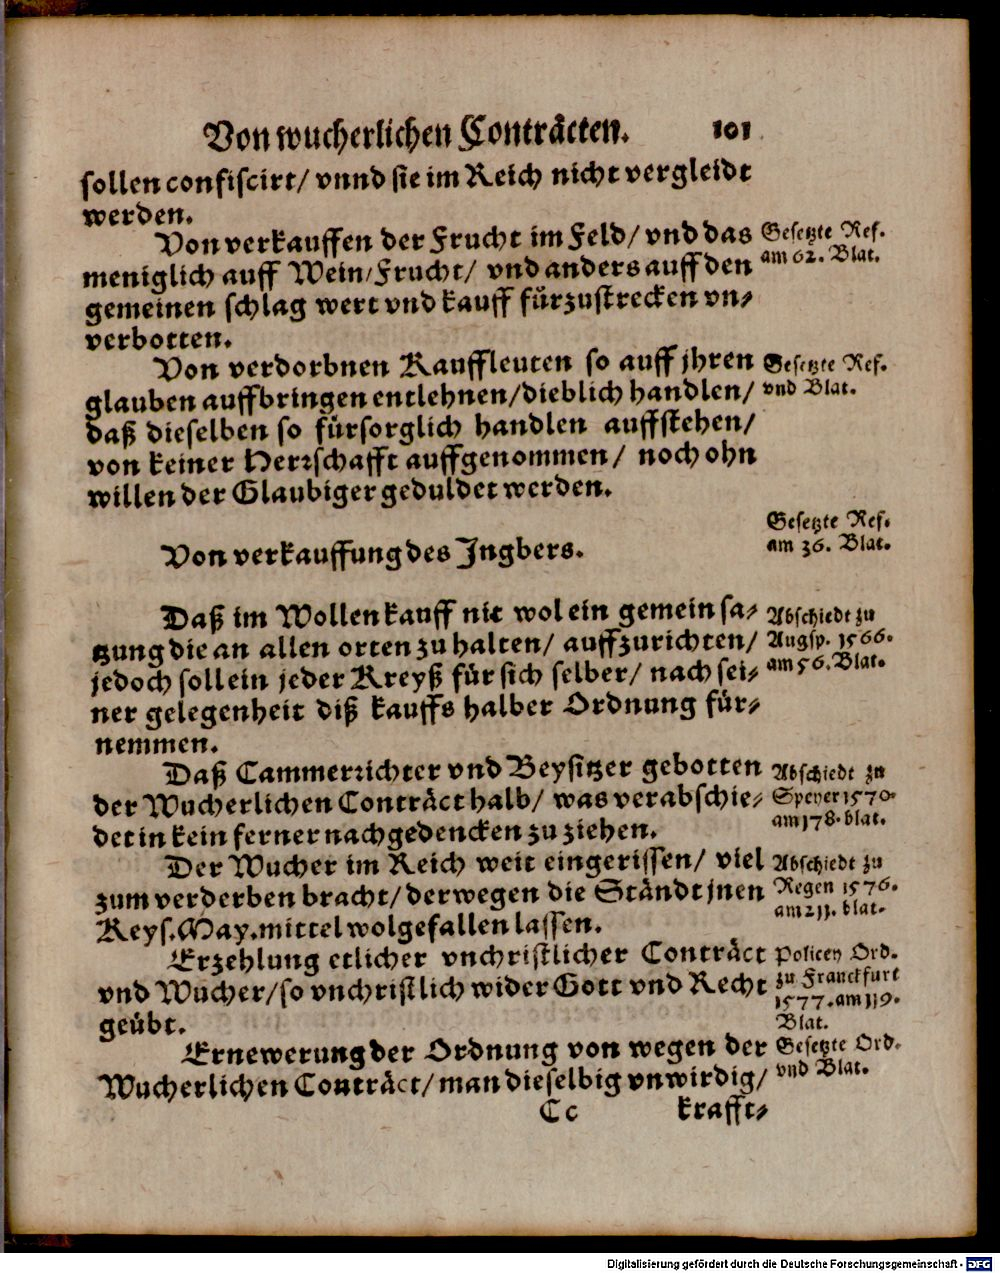 Von wucherlichen Conträcten. 101
sollen confiscirt/ vnnd sie im Reich nicht vergleidt
werden.
Von verkauffen der Frucht im Feld/ vnd das
meniglich auff Wein/Frucht/ vnd anders auff den
gemeinen schlag wert vnd kauff fürzustrecken vn-
verbotten.
Gesetzte Ref.
am 62. Blat.
Von verdorbnen Kauffleuten so auff jhren
glauben auffbringen entlehnen/dieblich handlen/
daß dieselben so fürsorglich handlen auffstehen/
von keiner Herrschafft auffgenommen/ noch ohn
willen der Glaubiger geduldet werden.
Gesetzte Ref.
vnd Blat.
Von verkauffung des Jngbers.
Gesetzte Ref.
am 36. Blat.
Daß im Wollenkauff nit wol ein gemein sa-
tzung die an allen orten zu halten/ auffzurichten/
jedoch soll ein jeder Kreyß für sich selber/ nach sei-
ner gelegenheit diß kauffs halber Ordnung für-
nemmen.
Abschiedt zu
Augsp. 1566.
am 56. Blat.
Daß Cammerrichter vnd Beysitzer gebotten
der Wucherlichen Conträct halb/ was verabschie-
det in kein ferner nachgedencken zu ziehen.
Abschiedt zu
Speyer 1570.
am 178. blat.
Der Wucher im Reich weit eingerissen/ viel
zum verderben bracht/ derwegen die Ständt jnen
Keys. May. mittel wolgefallen lassen.
Abschiedt zu
Regen 1576.
am 211. blat.
Erzehlung etlicher vnchristlicher Conträct
vnd Wucher/so vnchristlich wider Gott vnd Recht
geübt.
Policey Ord.
zu Franckfurt
1577. am 119.
Blat.
Ernewerung der Ordnung von wegen der
Wucherlichen Conträct/ man dieselbig vnwirdig/
Gesetzte Ord.
vnd Blat.
Cc krafft-
Digitalisierung gefördert durch die Deutsche Forschungsgemeinschaft - DFG